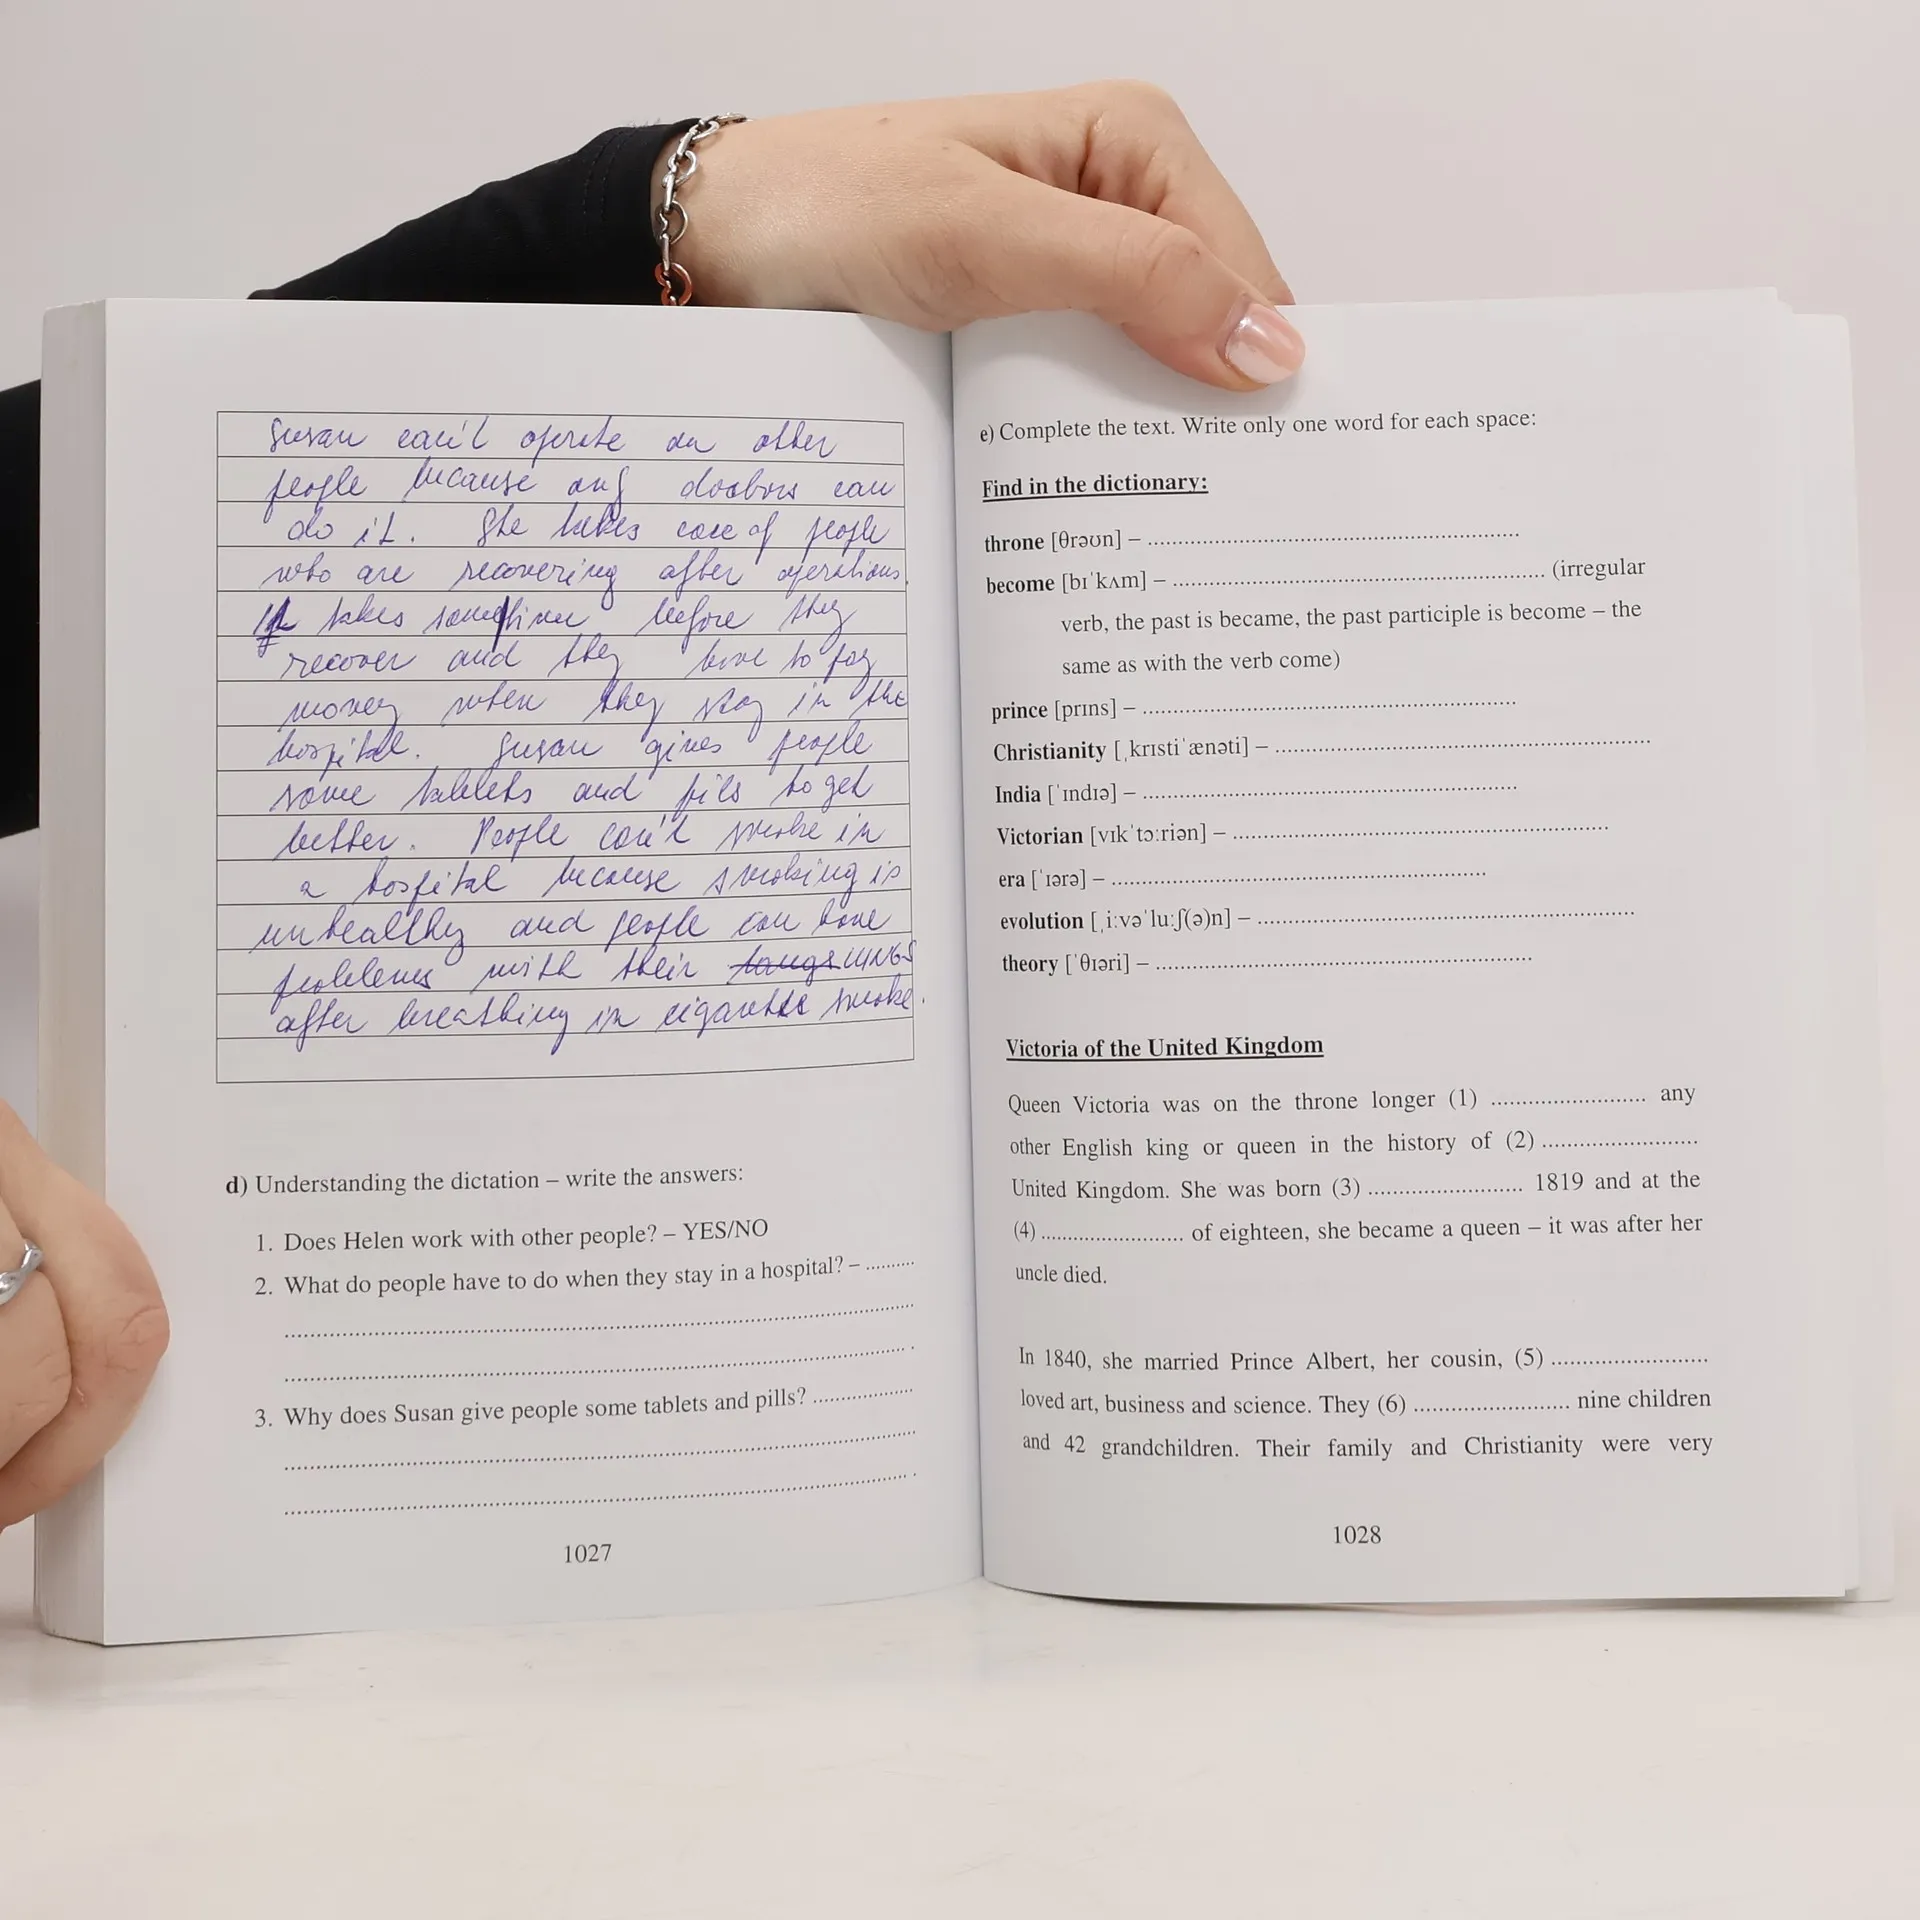 Susan can't operate on other
people because only doctors can
do it. She takes care of people
who are recovering after operations.
It takes sometimes before they
recover and they have to pay
money when they stay in the
hospital. Susan gives people
some tablets and pils to get
better. People can't smoke in
a hospital because smoking is
unhealthy and people can have
problems with their LUNGS
after breathing in cigarette smoke.
d) Understanding the dictation – write the answers:
1. Does Helen work with other people? – YES/NO
2. What do people have to do when they stay in a hospital? – ..........
3. Why does Susan give people some tablets and pills? ..................
1027
e) Complete the text. Write only one word for each space:
Find in the dictionary:
throne [θrəʊn] – ..........
become [bɪˈkʌm] – .......... (irregular
verb, the past is became, the past participle is become – the
same as with the verb come)
prince [prɪns] – ..........
Christianity [ˌkrɪstiˈænəti] – ..........
India [ˈɪndɪə] – ..........
Victorian [vɪkˈtɔːriən] – ..........
era [ˈɪərə] – ..........
evolution [ˌiːvəˈluːʃ(ə)n] – ..........
theory [ˈθɪəri] – ..........
Victoria of the United Kingdom
Queen Victoria was on the throne longer (1) .......... any
other English king or queen in the history of (2) ..........
United Kingdom. She was born (3) .......... 1819 and at the
(4) .......... of eighteen, she became a queen – it was after her
uncle died.
In 1840, she married Prince Albert, her cousin, (5) ..........
loved art, business and science. They (6) .......... nine children
and 42 grandchildren. Their family and Christianity were very
1028